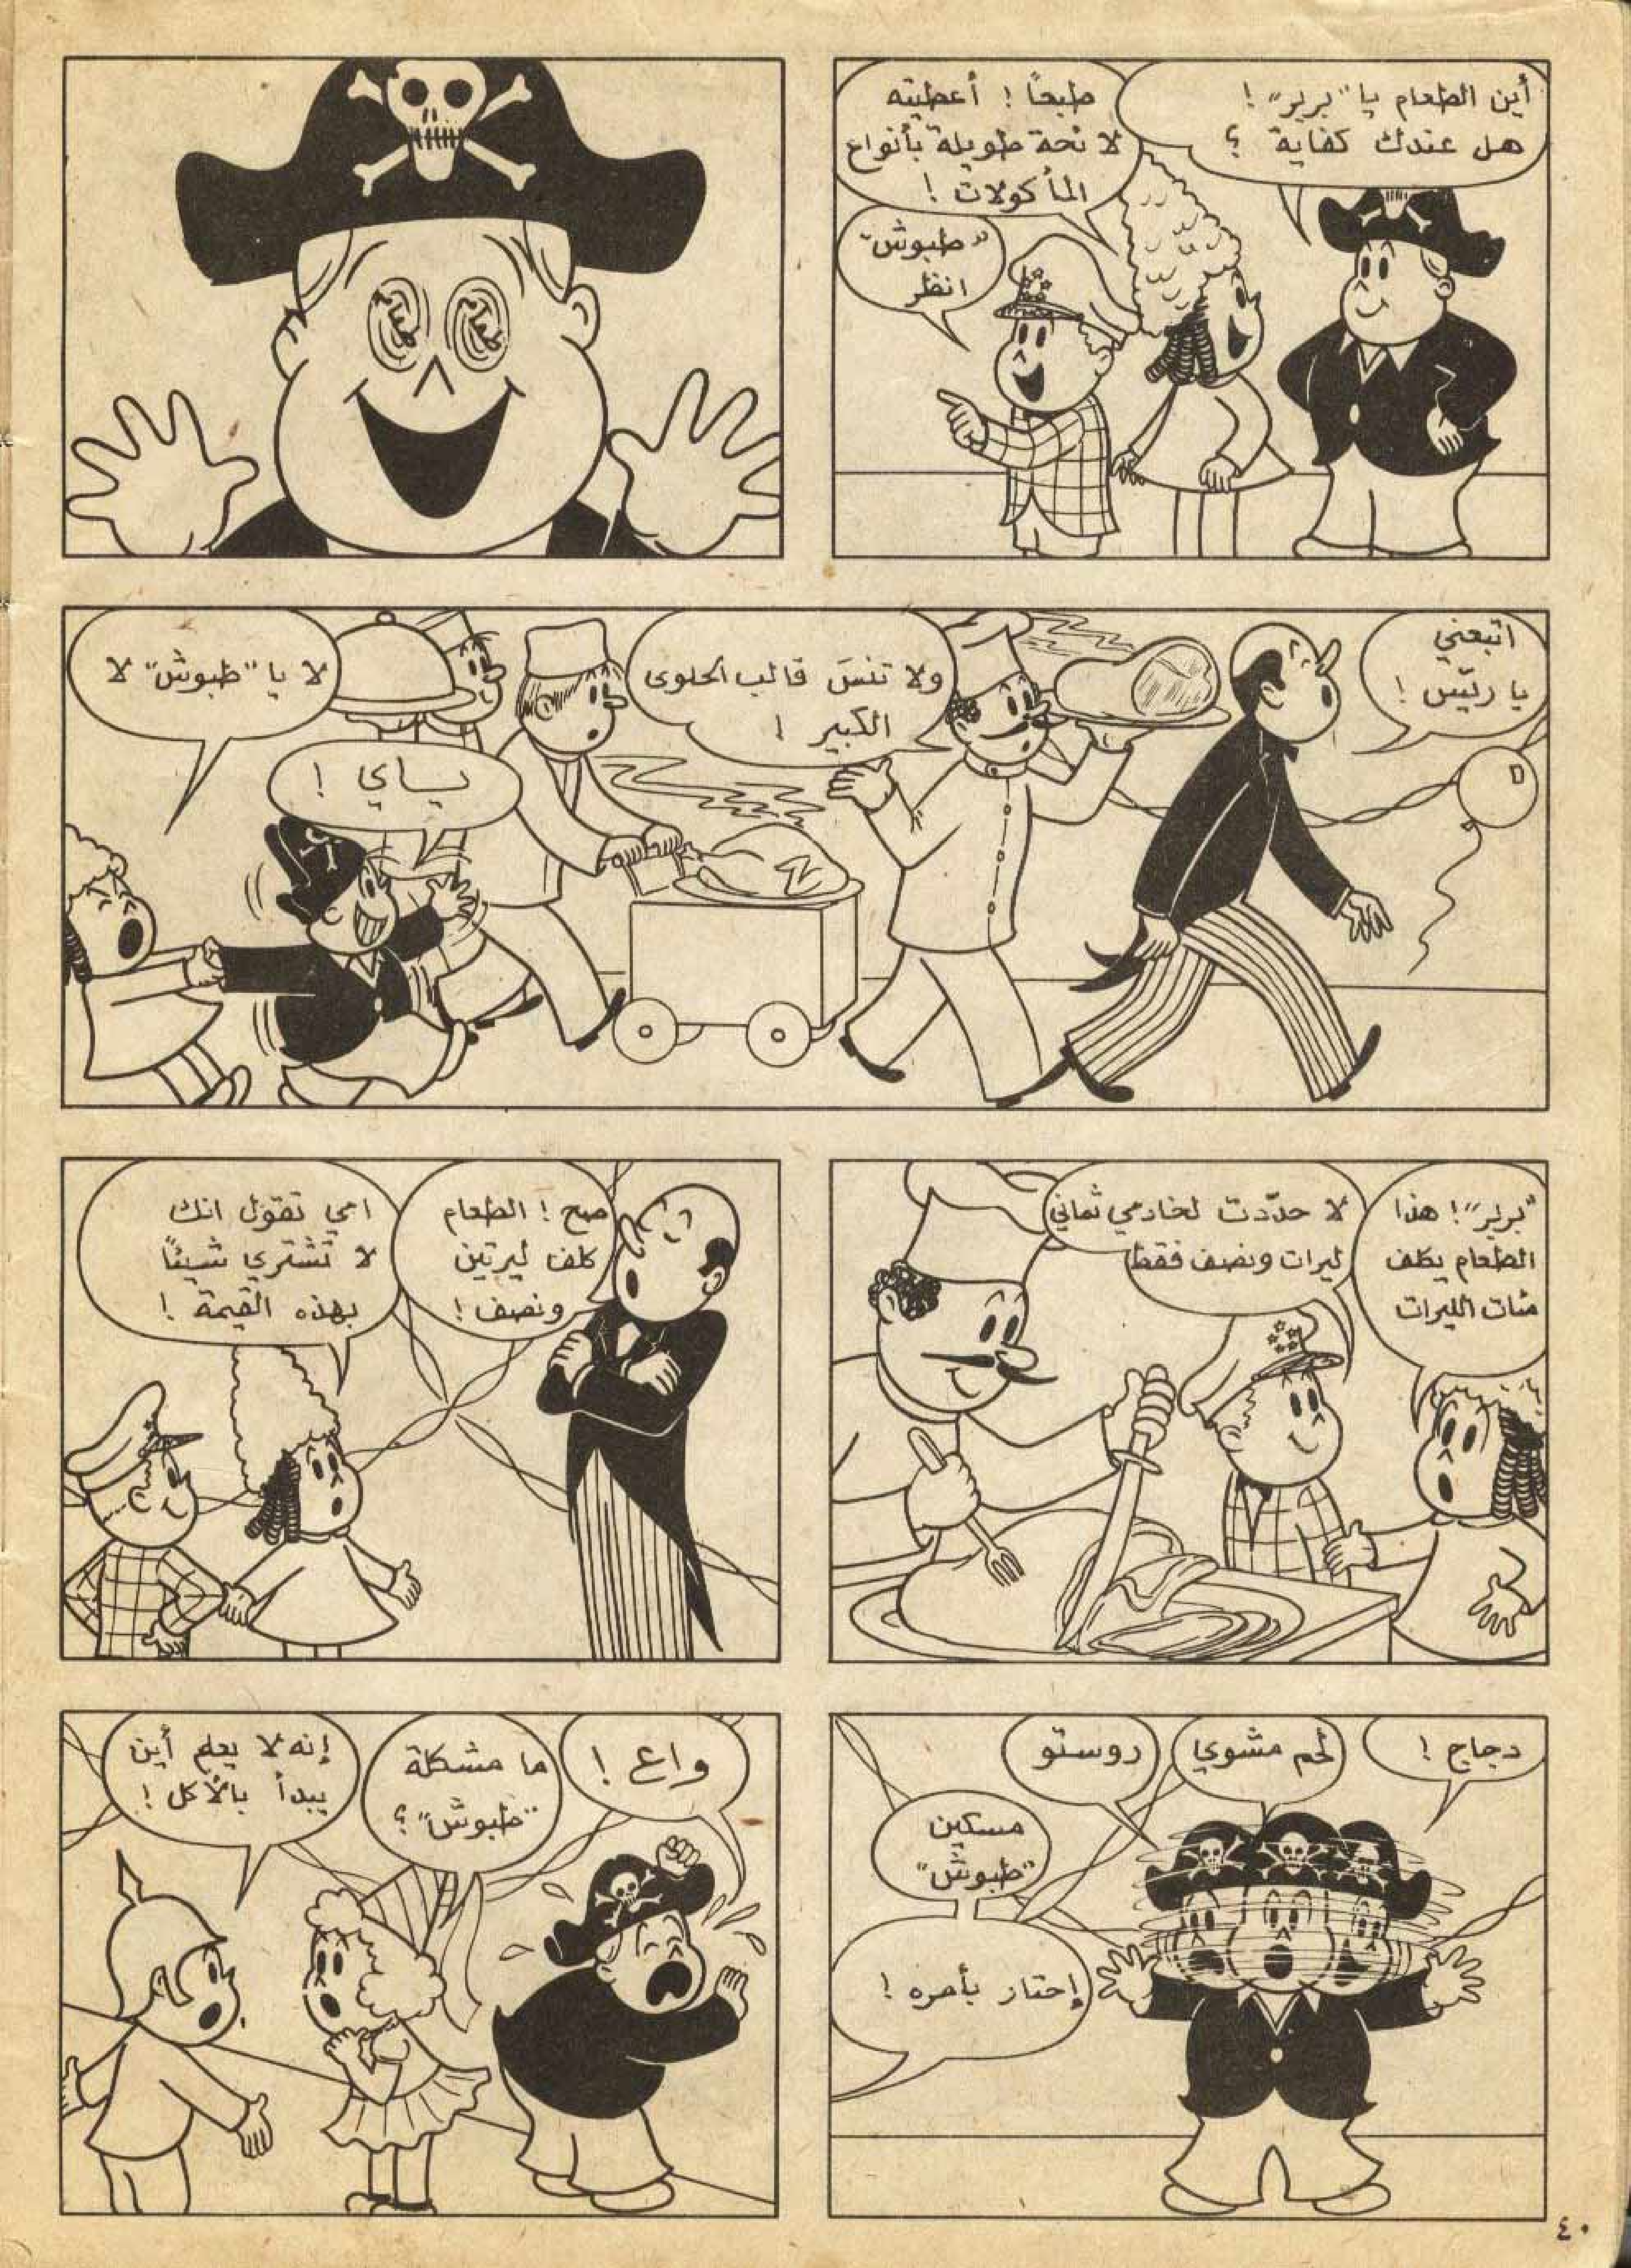 أين الطعام يا "بربر"!
هل عندك كفاية ؟
طبعاً ! أعطيته
لائحة طويلة بأنواع
المأكولات !
"طبوش"
انظر
اتبعني
يا ريّس !
ولا تنسَ قالب الحلوى
الكبير !
ياي !
لا يا "طبوش" لا
"بربر"! هذا
الطعام يكلف
مئات الليرات
لا حدّدت لخادمي ثماني
ليرات ونصف فقط
صح ! الطعام
كلف ليرتين
ونصف !
امي تقول انك
لا تشتري شيئاً
بهذه القيمة !
دجاج !
لحم مشوي
روستو
مسكين
"طبوش"
إحتار بأمره !
واع !
ما مشكلة
"طبوش" ؟
إنه لا يعلم أين
يبدأ بالأكل !
٤٠